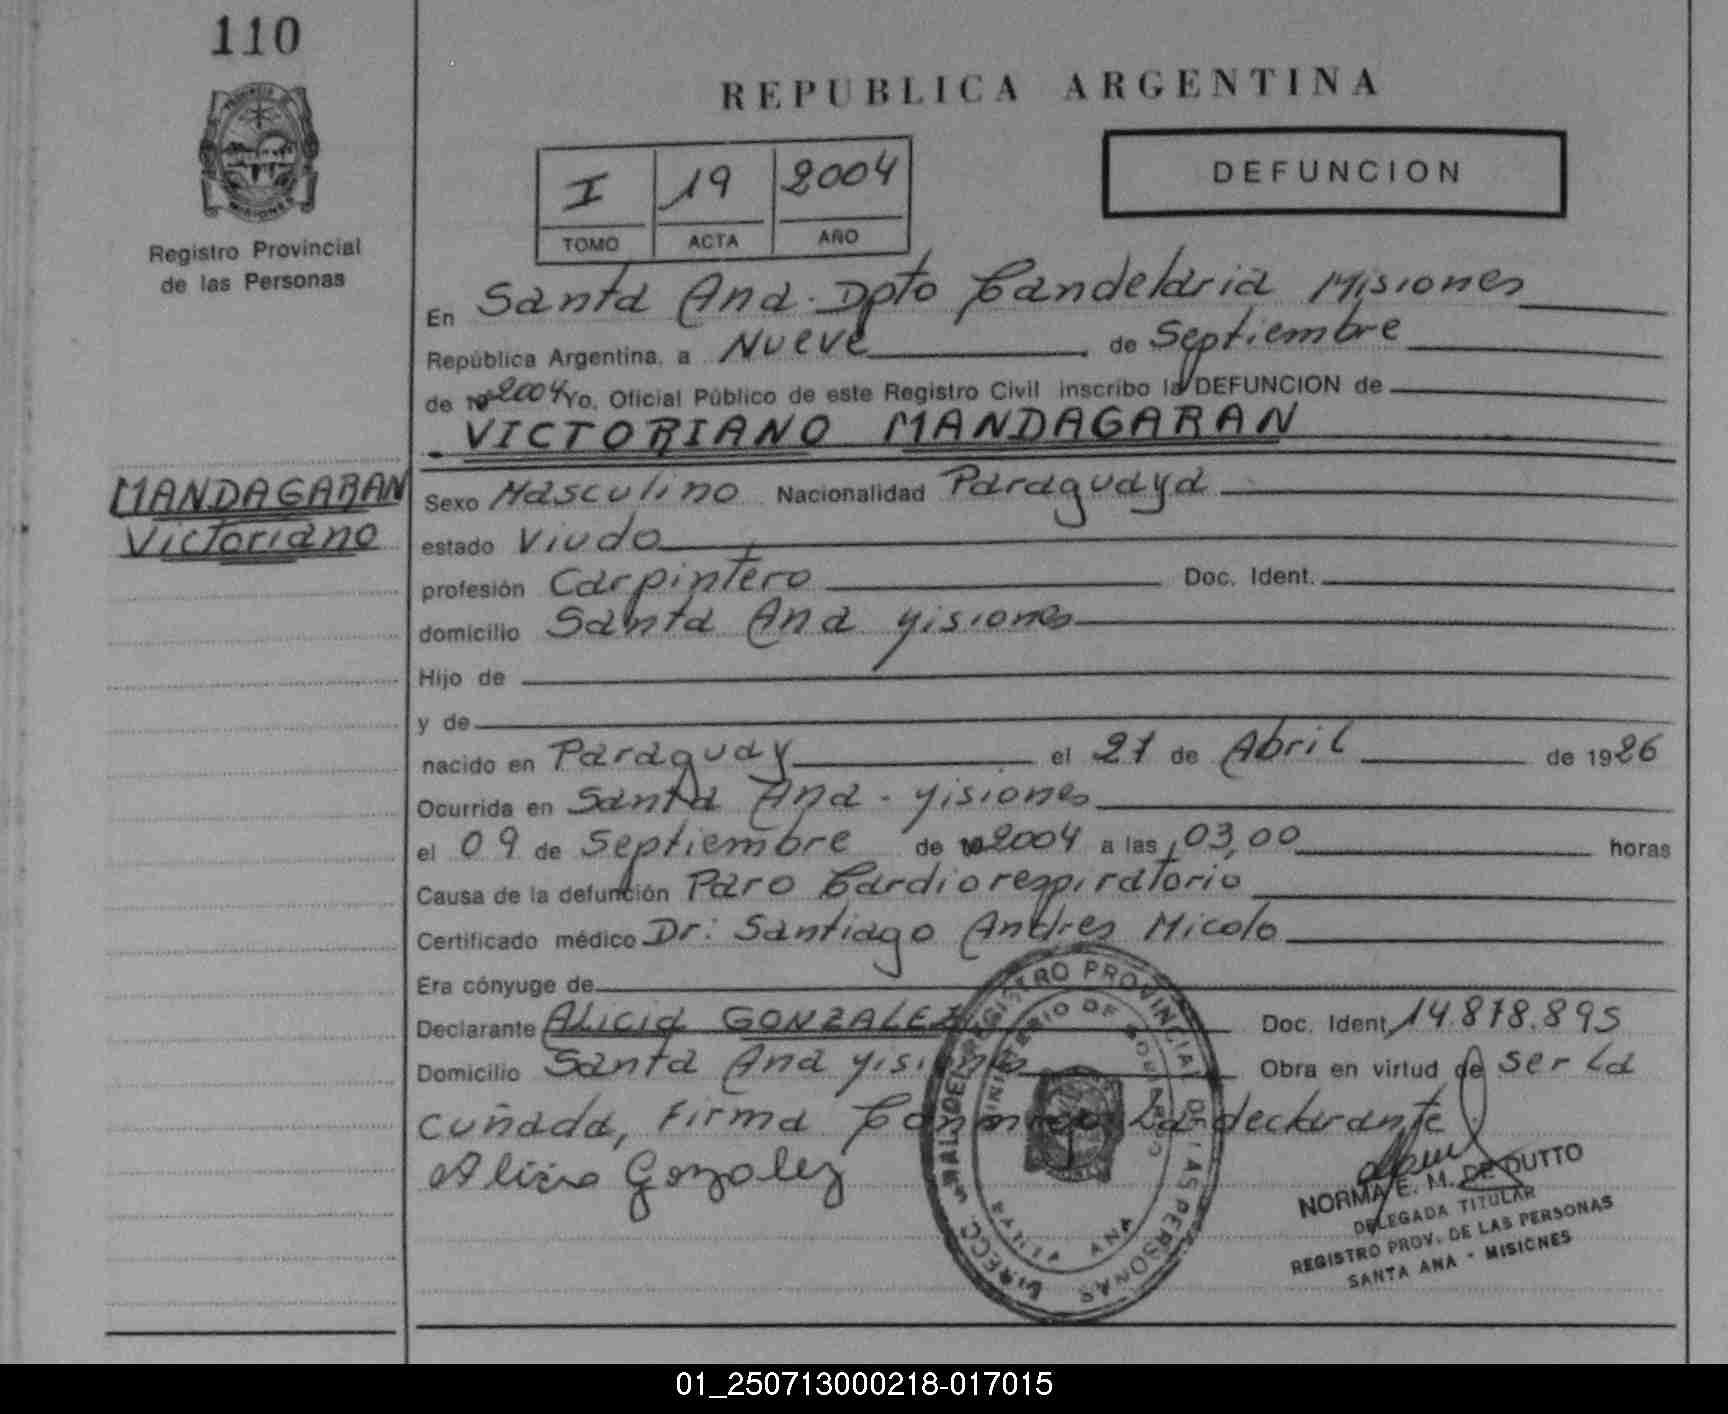 110
REPUBLICA ARGENTINA
PROVINCIA DE
MISIONES
I 19 2004
TOMO ACTA AÑO
DEFUNCION
Registro Provincial
de las Personas
En Santa Ana. Dpto Candelaria Misiones
República Argentina, a Nueve de Septiembre
de 19 2004 Yo, Oficial Público de este Registro Civil inscribo la DEFUNCION de
VICTORIANO MANDAGARAN
MANDAGARAN
Victoriano
Sexo Masculino Nacionalidad Paraguaya
estado Viudo
profesión Carpintero Doc. Ident.
domicilio Santa Ana Misiones
Hijo de
y de
nacido en Paraguay el 21 de Abril de 1926
Ocurrida en Santa Ana - Misiones
el 09 de Septiembre de 19 2004 a las 03,00 horas
Causa de la defunción Paro Cardiorespiratorio
Certificado médico Dr: Santiago Andres Micolo
Era cónyuge de
Declarante Alicia GONZALEZ Doc. Ident. 14.878.895
Domicilio Santa Ana Misiones Obra en virtud de ser la
cuñada, Firma Conmigo La declarante
Alicia Gonzalez
REGISTRO PROVINCIAL DE LAS PERSONAS
MINISTERIO DE GOBIERNO
ANA
NORMA E. M. DE DUTTO
DELEGADA TITULAR
REGISTRO PROV. DE LAS PERSONAS
SANTA ANA - MISIONES
01_250713000218-017015